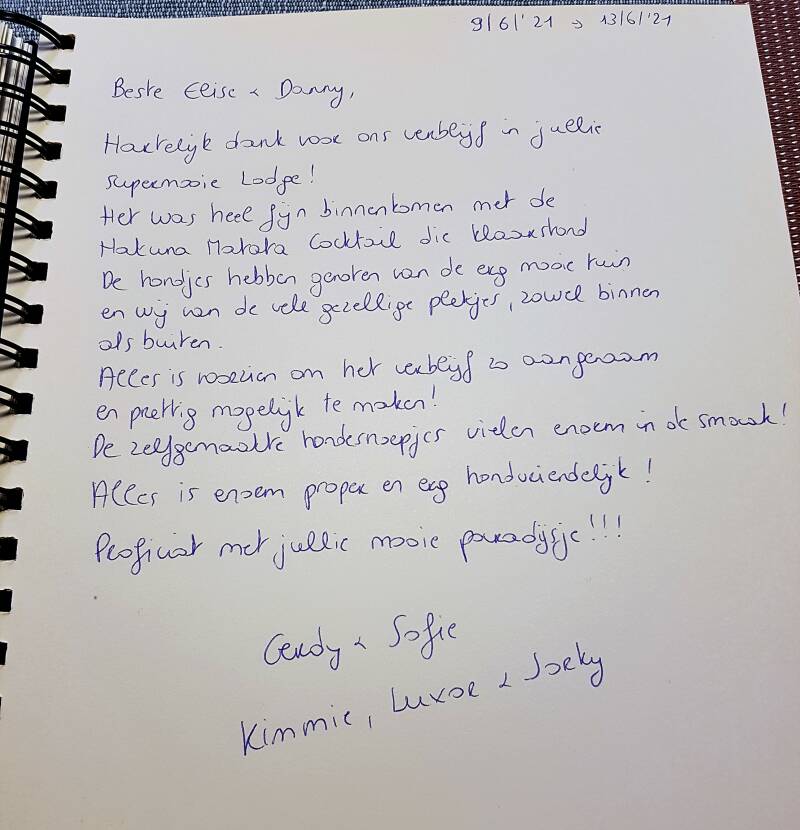 9/6/'21 → 13/6/'21
Beste Elise & Danny,
Hartelijk dank voor ons verblijf in jullie
supermooie Lodge!
Het was heel fijn binnenkomen met de
Hakuna Matata Cocktail die klaarstond
De hondjes hebben genoten van de erg mooie tuin
en wij van de vele gezellige plekjes, zowel binnen
als buiten.
Alles is voorzien om het verblijf zo aangenaam
en prettig mogelijk te maken!
De zelfgemaakte hondesnoepjes vielen enorm in de smaak!
Alles is enorm proper en erg hondvriendelijk!
Proficiat met jullie mooie paradijsje!!!
Gerdy & Sofie
Kimmie, Luxor & Jorky